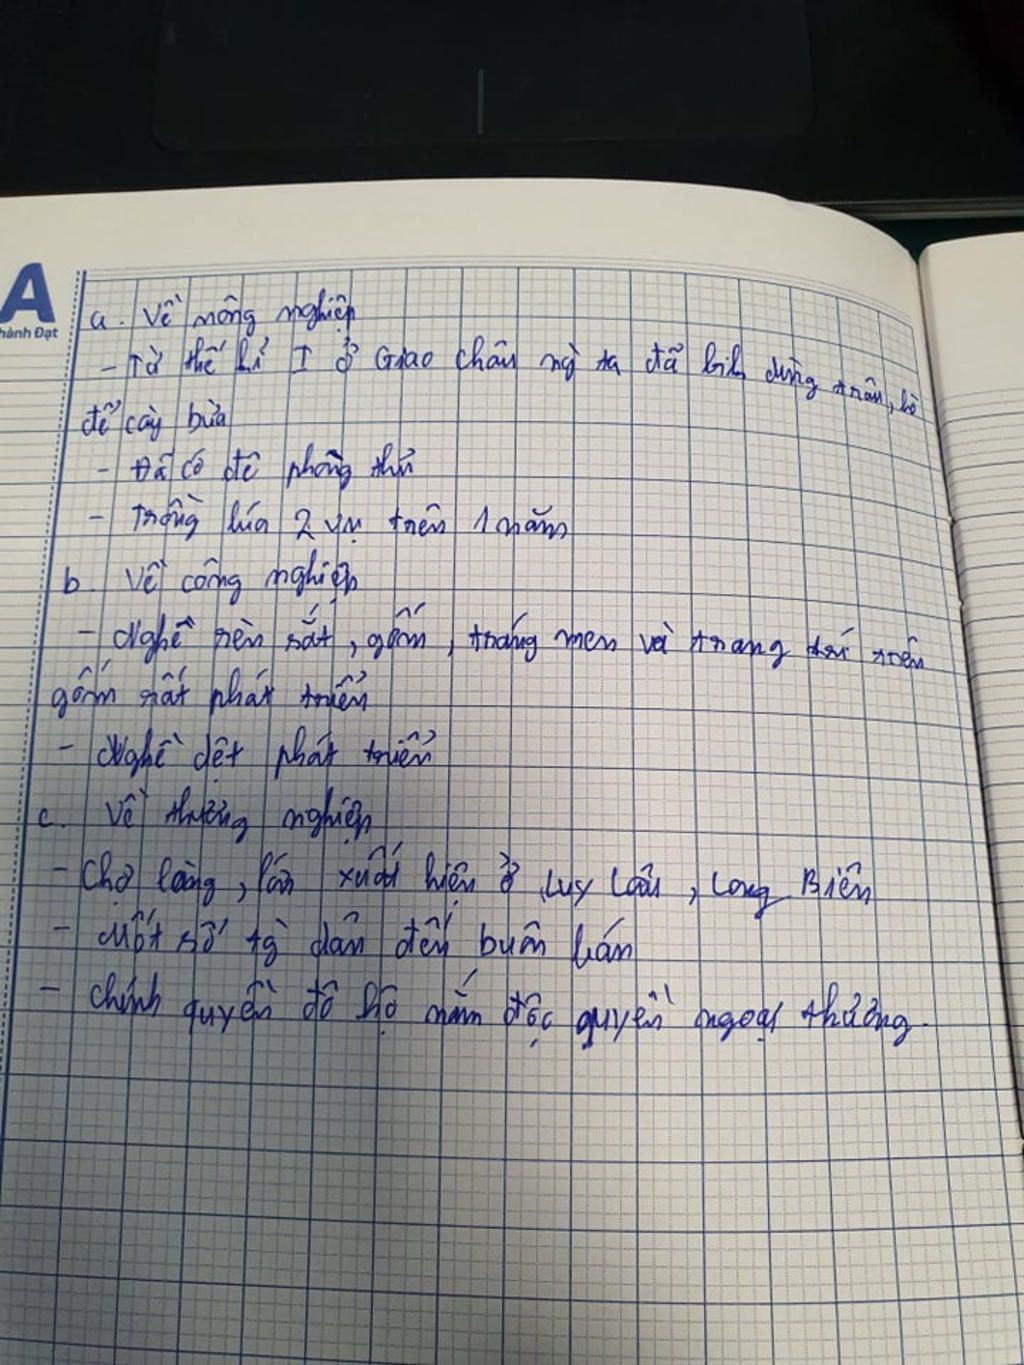 A
hành Đạt
a. Về nông nghiệp
- Từ thế kỉ I ở Giao Châu ng ta đã biết dùng trâu, bò
để cày bừa
- Đã có đê phòng
- Trồng lúa 2 vụ trên 1 năm
b. Về công nghiệp
- Nghề rèn sắt, gốm, tráng men và trang trí trên
gốm rất phát triển
- Nghề dệt phát triển
c. Về thương nghiệp
- Chợ làng, lớn xuất hiện ở Luy Lâu, Long Biên
- Một số dân đến buôn bán
- Chính quyền đô hộ nắm độc quyền ngoại thương.